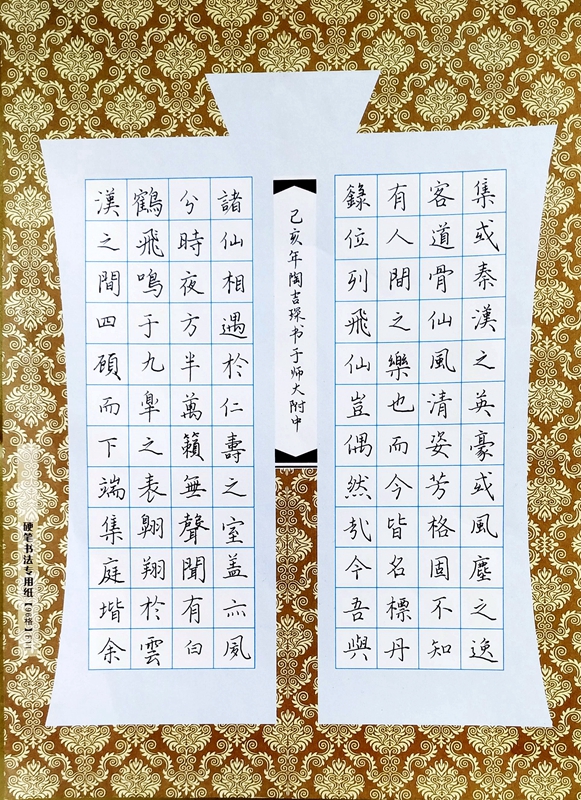 集或秦漢之英豪或風塵之逸
客道骨仙風清姿芳格固不知
有人間之樂也而今皆名標丹
錄位列飛仙豈偶然哉今吾與
己亥年陶吉琛书于师大附中
諸仙相遇於仁壽之室盖亦風
兮時夜方半萬籟無聲聞有白
鶴飛鳴于九皐之表翱翔於雲
漢之間四碩而下端集庭堦余
硬笔书法专用纸【96格】